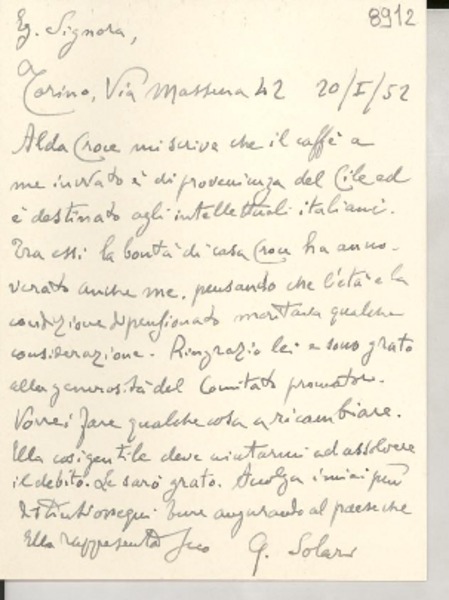 8912
Eg. Signora,
Torino, Via Massena 42 20/I/52
Alda Croce mi scrive che il caffè a
me inviato è di provenienza del Cile ed
è destinato agli intellettuali italiani.
Tra essi la bontà di casa Croce ha anno-
verato anche me, pensando che l'età e la
condizione di pensionato meritava qualche
considerazione. Ringrazio lei e sono grato
alla generosità del Comitato promotore.
Vorrei fare qualche cosa a ricambiare.
Ella così gentile deve aiutarmi ad assolvere
il debito. Le sarò grato. Accolga i miei più
distinti ossequi bene augurando al paese che
Ella rappresenta Suo G. Solari